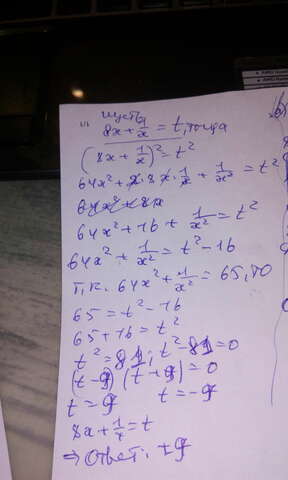 пусть
8x + 1/x = t, тогда
(8x + 1/x)² = t²
64x² + 2·8x·1/x + 1/x² = t²
64x² + 16 + 1/x² = t²
64x² + 1/x² = t² - 16
т.к. 64x² + 1/x² = 65, то
65 = t² - 16
65 + 16 = t²
t² = 81; t² - 81 = 0
(t - 9) (t + 9) = 0
t = 9 t = -9
8x + 1/x = t
⇒ ответ: ±9